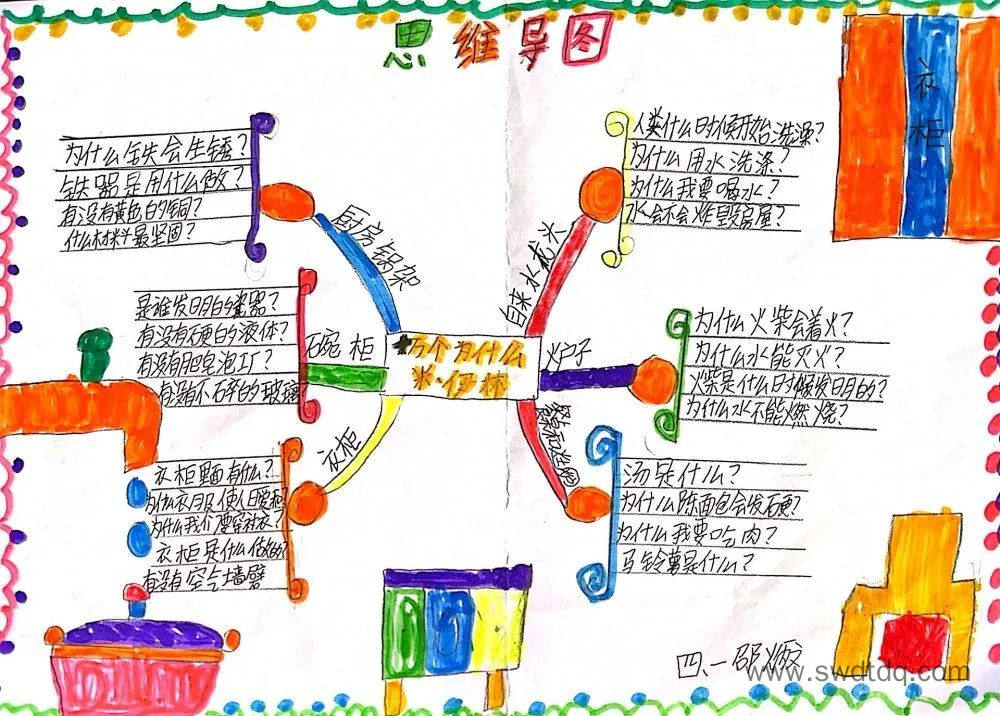 思维导图
衣柜
为什么铁会生锈？
铁器是用什么做？
有没有黄色的铜？
什么材料最坚固？
厨房锅架
是谁发明的瓷器？
有没有硬的液体？
有没有肥皂泡工厂？
有没有不碎的玻璃
碗柜
衣柜里面有什么？
为什么衣服使人暖和
为什么我们要穿衬衣？
衣柜是什么做的？
有没有空气墙壁
衣柜
十万个为什么
米·伊林
自来水龙头
人类什么时候开始洗澡？
为什么用水洗涤？
为什么我要喝水？
水会不会炸毁房屋？
炉子
为什么火柴会着火？
为什么水能灭火？
火柴是什么时候发明的？
为什么水不能燃烧？
汤是什么？
为什么陈面包会发硬？
为什么我要吃肉？
马铃薯是什么？
四、一
www.swdtdq.com